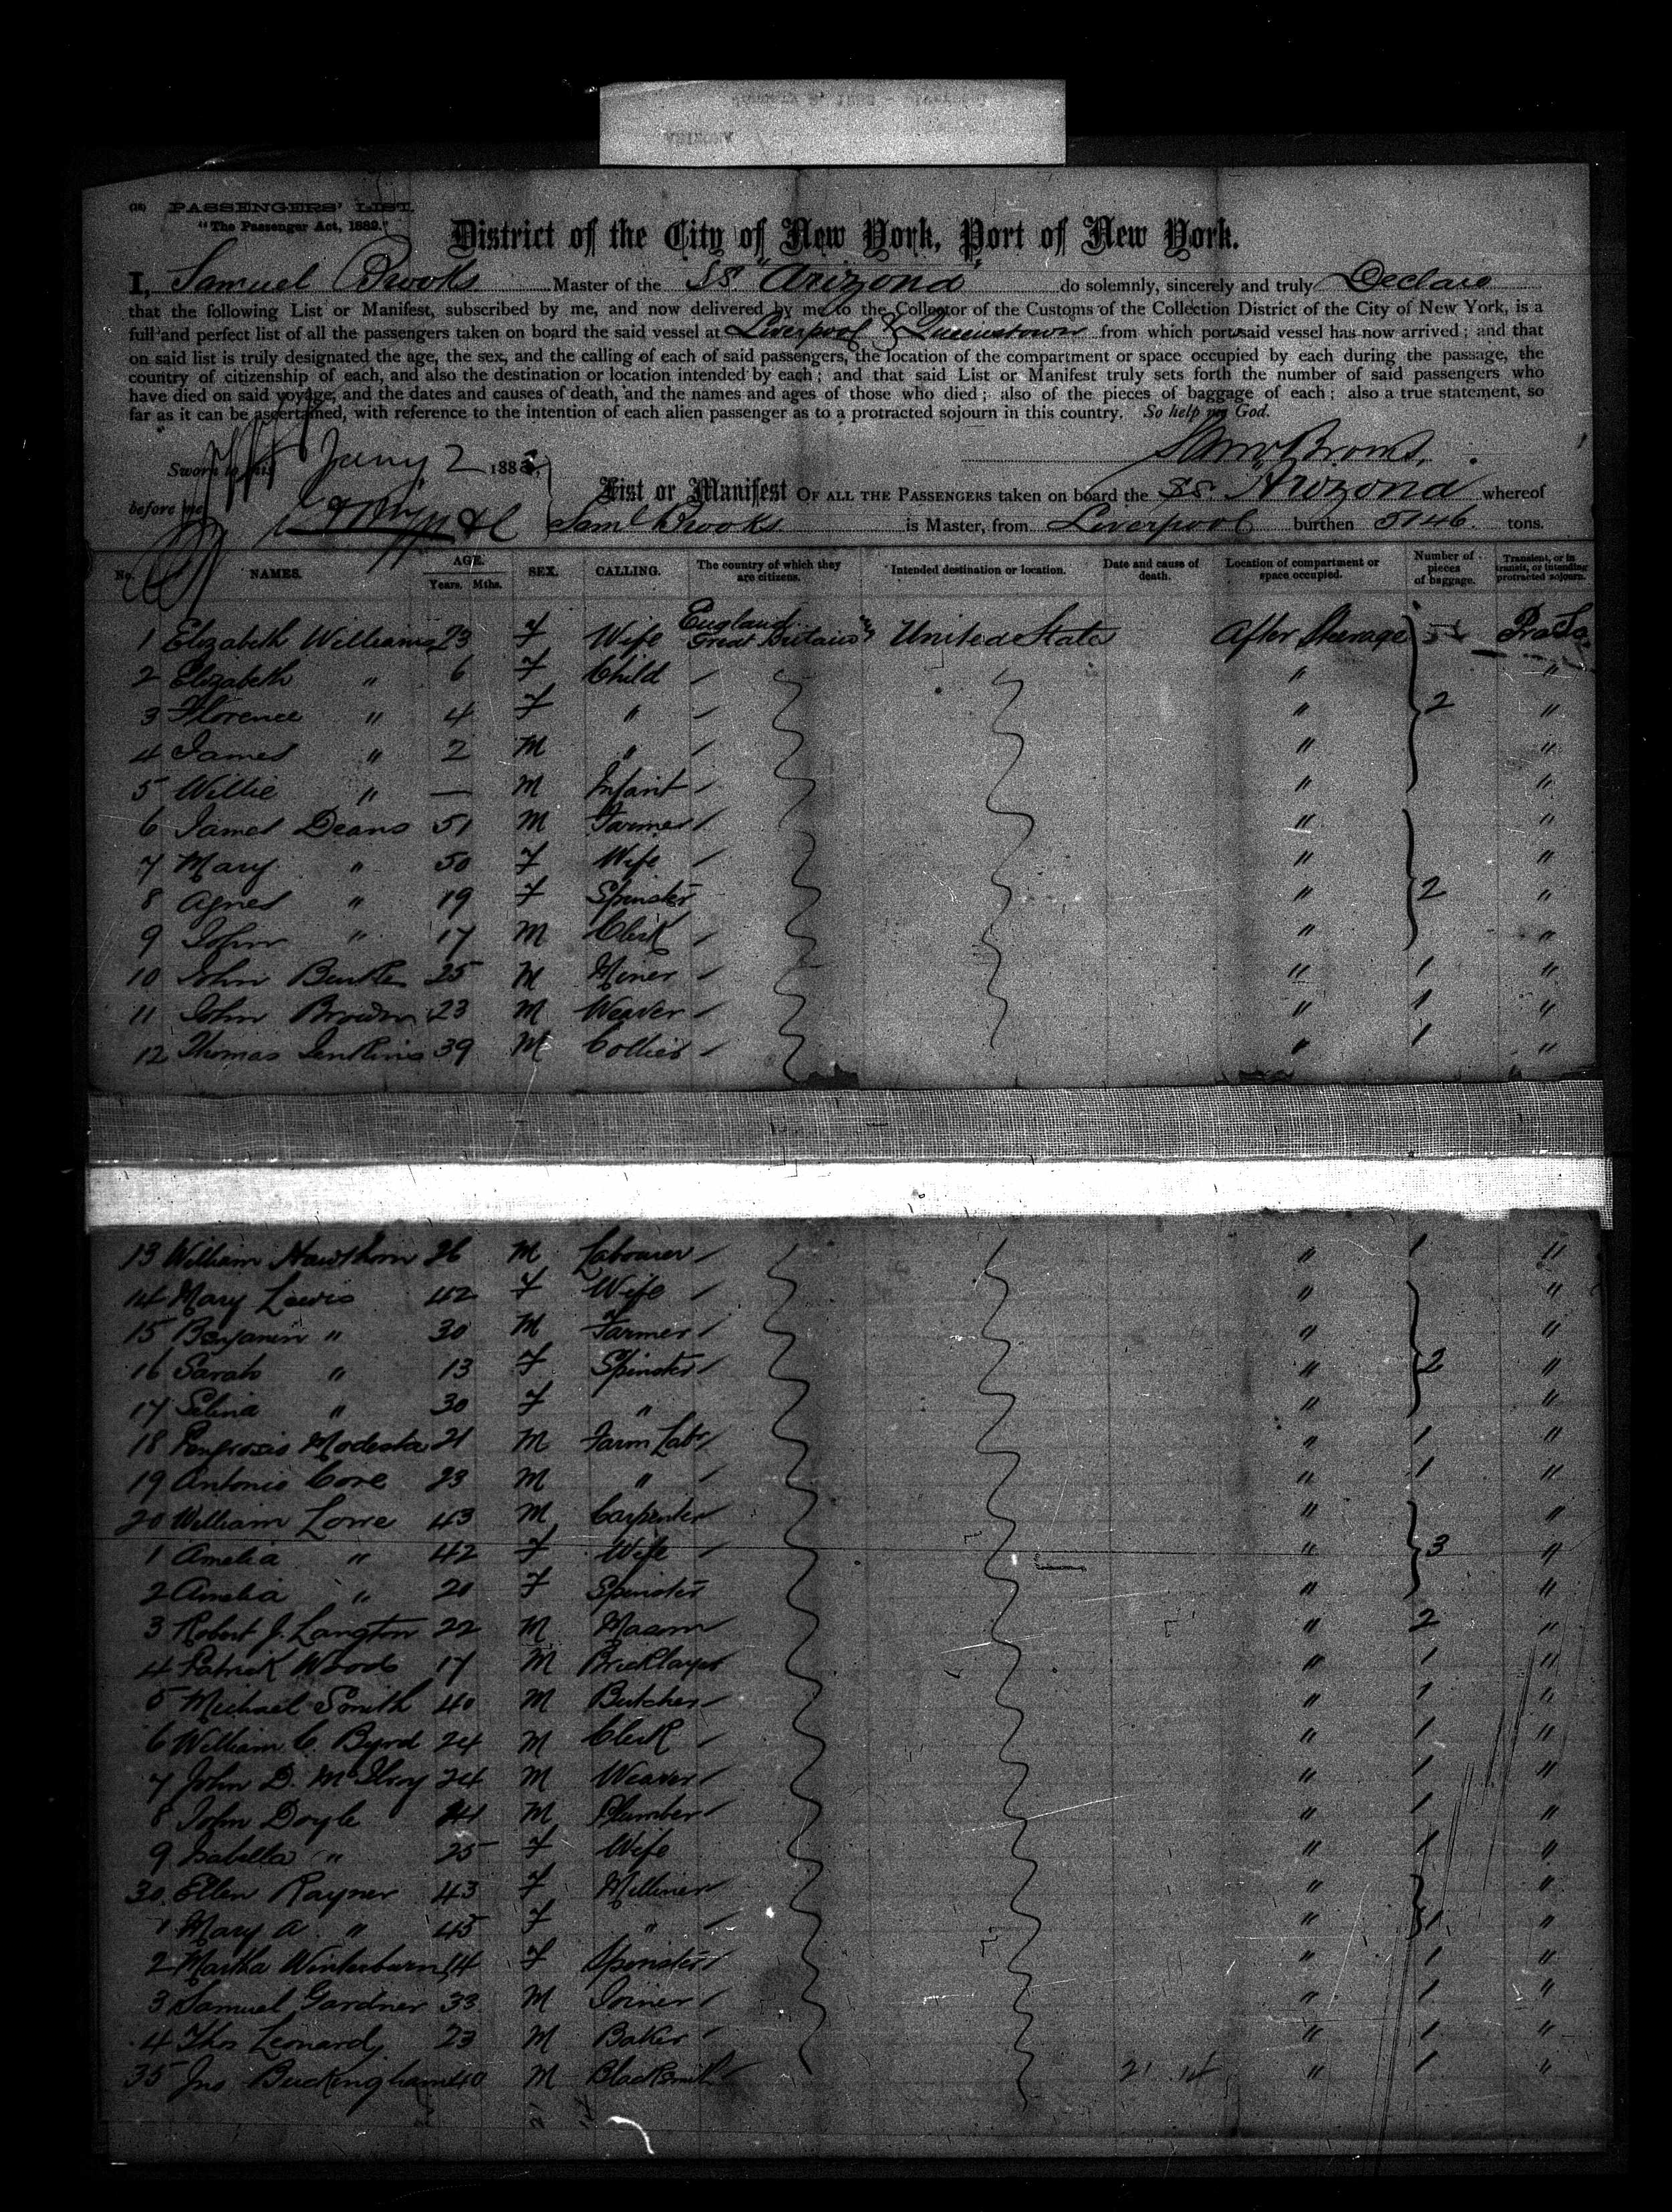 (18) PASSENGERS' LIST.
"The Passenger Act, 1882."
District of the City of New York, Port of New York.
I, Samuel Brooks Master of the SS. "Arizona" do solemnly, sincerely and truly Declare
that the following List or Manifest, subscribed by me, and now delivered by me to the Collector of the Customs of the Collection District of the City of New York, is a
full and perfect list of all the passengers taken on board the said vessel at Liverpool & Queenstown from which port said vessel has now arrived; and that
on said list is truly designated the age, the sex, and the calling of each of said passengers, the location of the compartment or space occupied by each during the passage, the
country of citizenship of each, and also the destination or location intended by each; and that said List or Manifest truly sets forth the number of said passengers who
have died on said voyage, and the dates and causes of death, and the names and ages of those who died; also of the pieces of baggage of each; also a true statement, so
far as it can be ascertained, with reference to the intention of each alien passenger as to a protracted sojourn in this country. So help me God.
Sworn to this Jany 2 188
Saml Brooks.
before me
List or Manifest OF ALL THE PASSENGERS taken on board the SS. "Arizona" whereof
Saml Brooks is Master, from Liverpool burthen 5146 tons.
No. NAMES. AGE. Years. Mths. SEX. CALLING. The country of which they are citizens. Intended destination or location. Date and cause of death. Location of compartment or space occupied. Number of pieces of baggage. Transient, or in transit, or intending protracted sojourn.
1 Elizabeth Williams 23 F Wife England Great Britain United States After Steerage
2 Elizabeth " 6 F Child " "
3 Florence " 4 F " " 2 "
4 James " 2 M " " "
5 Willie " — M Infant " "
6 James Deans 51 M Farmer " "
7 Mary " 50 F Wife " "
8 Agnes " 19 F Spinster " 2 "
9 John " 17 M Clerk " "
10 John Burke 25 M Miner " 1 "
11 John Brown 23 M Weaver " 1 "
12 Thomas Jenkins 39 M Collier " 1 "
13 William Hawthorn 26 M Labourer " 1 "
14 Mary Lewis 42 F Wife " "
15 Benjamin " 30 M Farmer " "
16 Sarah " 13 F Spinster " 2 "
17 Selina " 30 F " " "
18 Modesta 21 M Farm Labr " 1 "
19 Antonio Core 23 M " " 1 "
20 William Lowe 43 M Carpenter " "
1 Amelia " 42 F Wife " 3 "
2 Amelia " 20 F Spinster " "
3 Robert J. Langton 22 M Mason " 2 "
4 Patrick Woods 17 M Bricklayer " 1 "
5 Michael Smith 40 M Butcher " 1 "
6 William C. Byrd 24 M Clerk " 1 "
7 John D. McIlroy 24 M Weaver " 1 "
8 John Doyle M Plumber " 1 "
9 Isabella " 25 F Wife " 1 "
30 Ellen Rayner 43 F Milliner " "
1 Mary A " 45 F " " 1 "
2 Martha Winterburn 14 F Spinster " 1 "
3 Samuel Gardner 33 M Joiner " 1 "
4 Thos Leonard 23 M Baker " 1 "
35 Jno Buckingham 40 M Blacksmith " 1 "